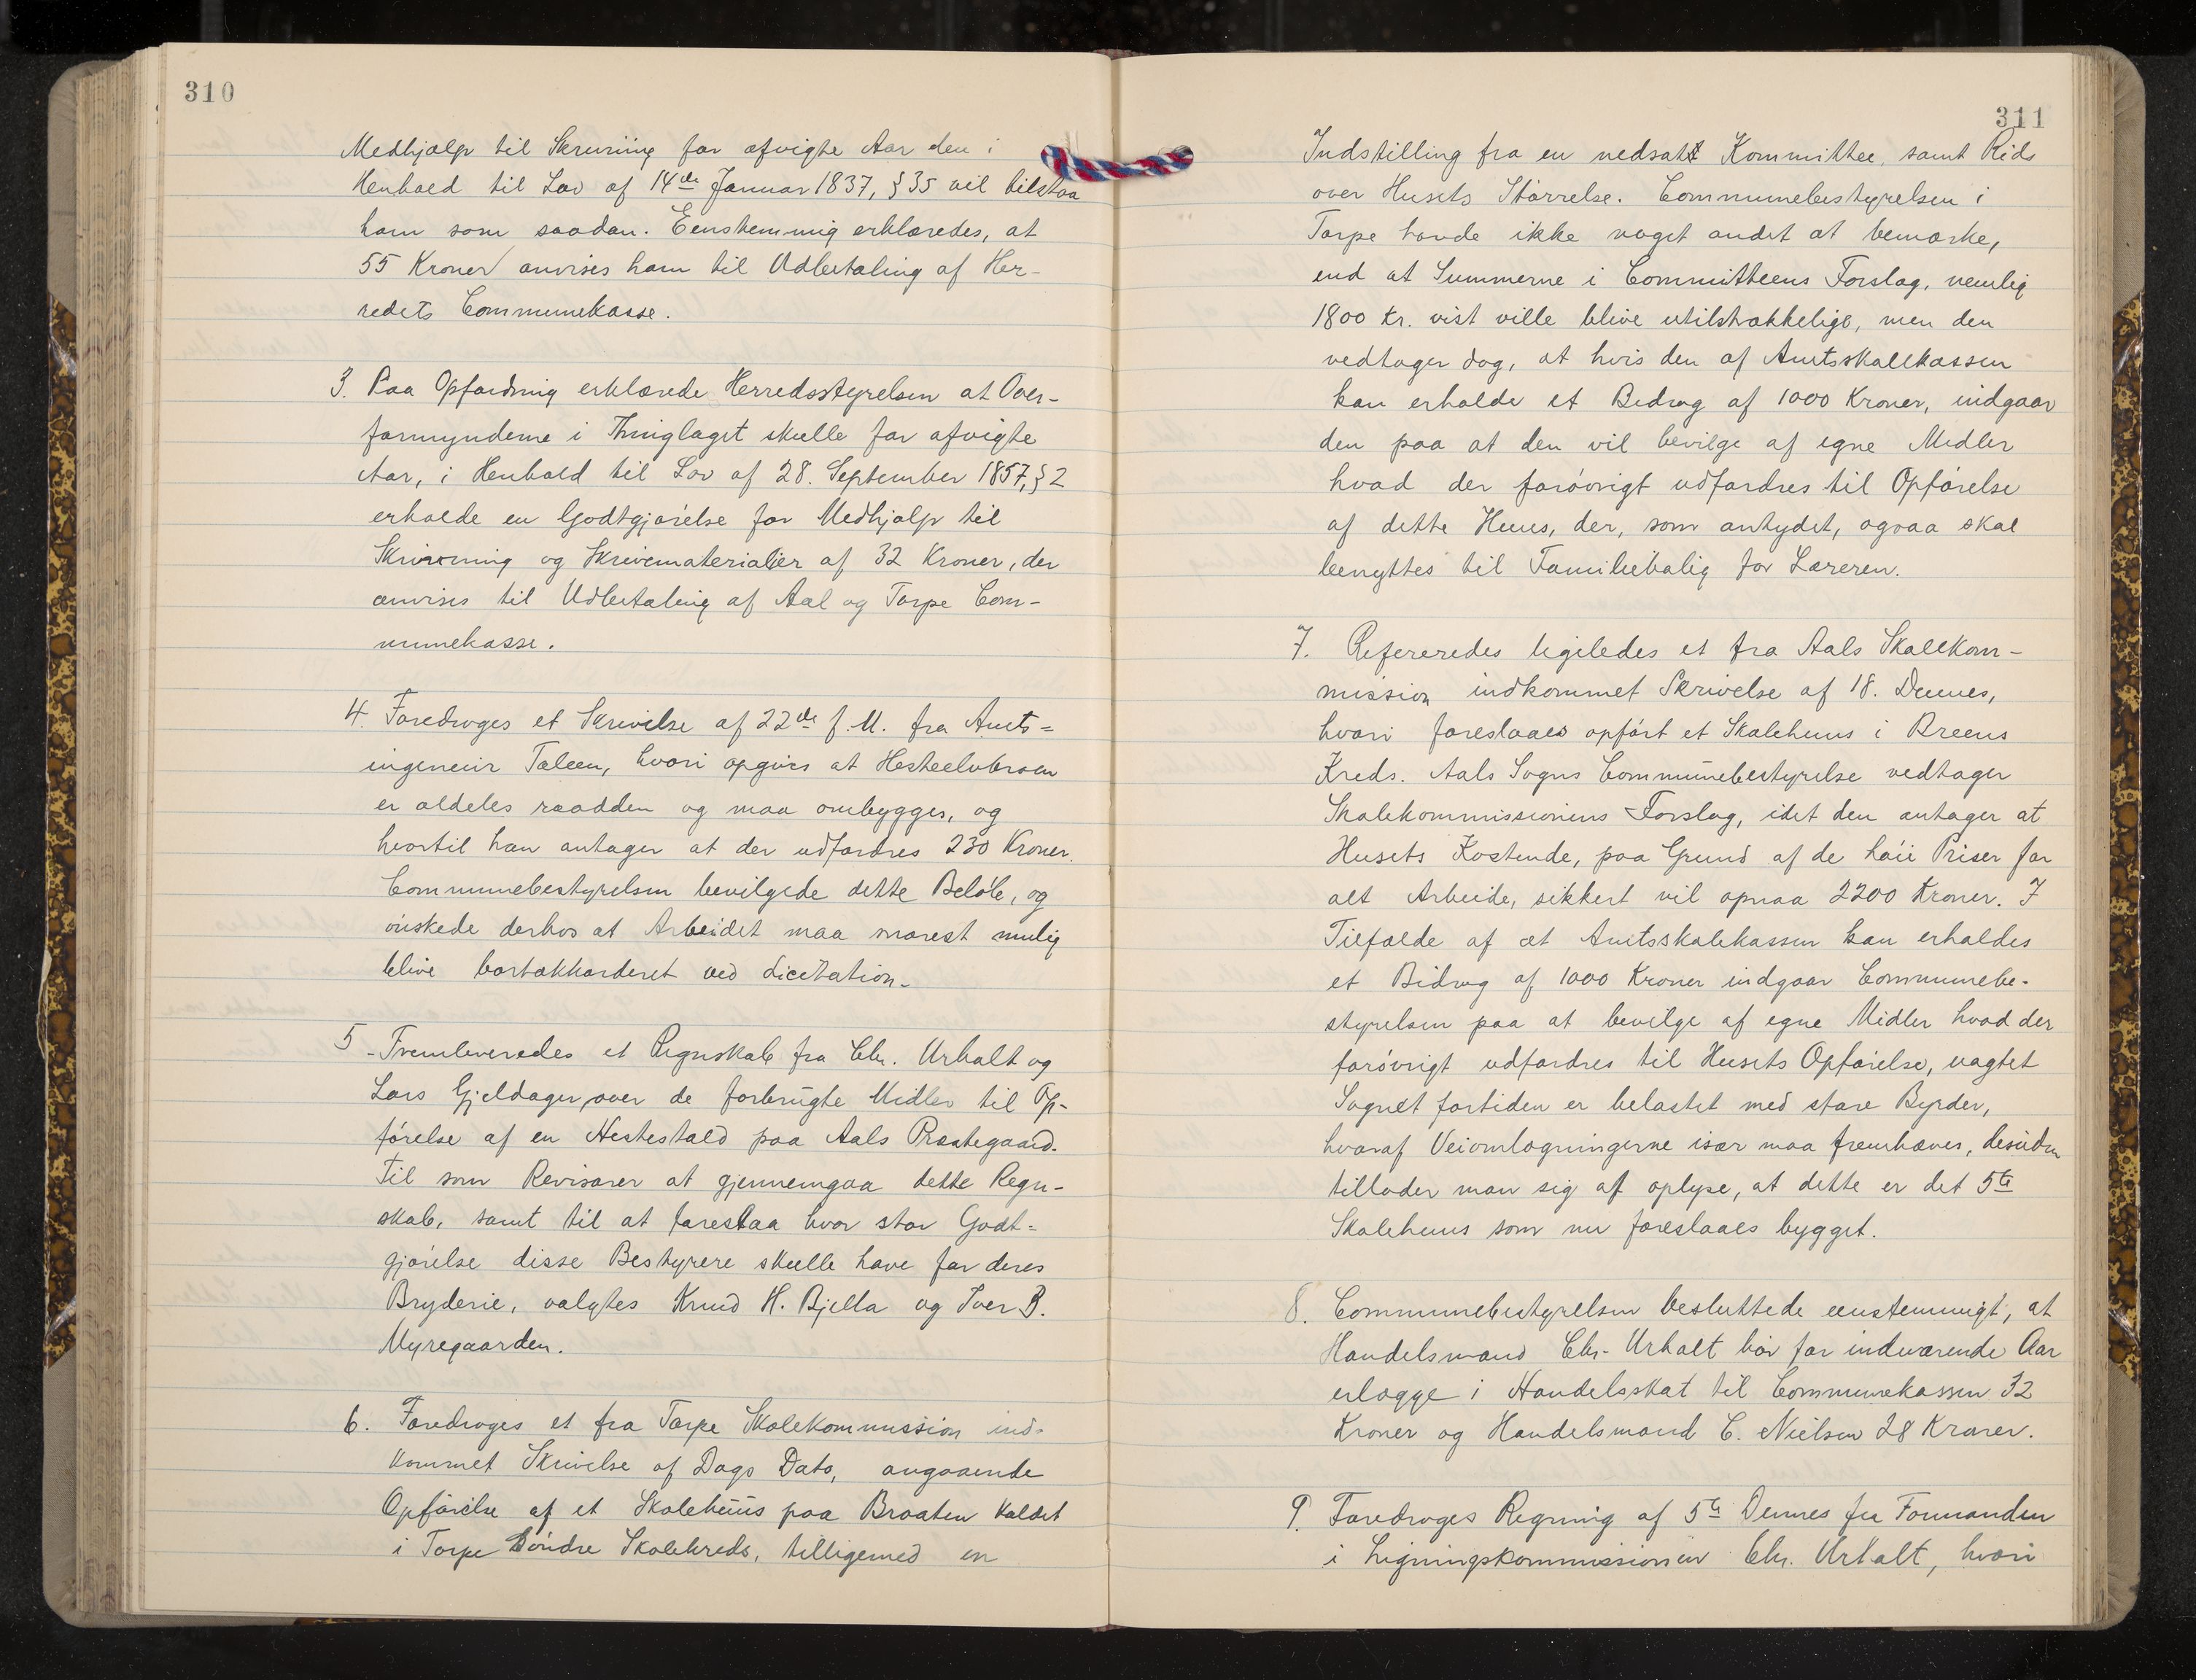 310
Medhjælp til Skrivning for afvigte Aar den i
Henhold til Lov af 14de Januar 1837, § 35 vil tilstaa
ham som saadan. Eenstemmig erklæredes, at
55 Kroner anvises ham til Udbetaling af Her-
redets Communekasse.
3. Paa Opfordring erklærede Herredsstyrelsen at Over-
formynderne i Thinglaget skulle for afvigte
Aar, i Henhold til Lov af 28. September 1857, § 2
erholde en Godtgjørelse for Medhjælp til
Skrivning og Skrivematerialier af 32 Kroner, der
anvises til Udbetaling af Aal og Torpe Com-
munekasse.
4. Foredroges et Skrivelse af 22de f. M. fra Amts-
ingeniør Taleen, hvori opgives at Hesteelvbroen
er aldeles raadden og maa ombygges, og
hvortil han antager at der udfordres 230 Kroner.
Communebestyrelsen bevilgede dette Beløb, og
ønskede derhos at Arbeidet maa snarest mulig
blive bortakkorderet ved Licitation.
5 - Fremleveredes et Regnskab fra Chr. Urhalt og
Lars Gjeldager, over de forbrugte Midler til Op-
førelse af en Hestestald paa Aals Præstegaard.
Til som Revisorer at gjennemgaa dette Regn-
skab, samt til at foreslaa hvor stor Godt-
gjørelse disse Bestyrere skulle have for deres
Bryderie, valgtes Knud H. Bjella og Iver B.
Myregaarden.
6. Foredroges et fra Torpe Skolekommission ind-
kommet Skrivelse af Dags Dato, angaaende
Opførelse af et Skolehuus paa Braaten kaldet
i Torpe Søndre Skolekreds, tilligemed en
311
Indstilling fra en nedsatt Kommittee, samt Rids
over Husets Størrelse. Communebestyrelsen i
Torpe havde ikke noget andet at bemærke,
end at Summerne i Committeens Forslag, nemlig
1800 kr. vist ville blive utilstrækkelige, men den
vedtager dog, at hvis den af Amtsskolekassen
kan erholde et Bidrag af 1000 Kroner, indgaar
den paa at den vil bevilge af egne Midler
hvad der forøvrigt udfordres til Opførelse
af dette Huus, der, som antydet, ogsaa skal
benyttes til Familiebolig for Læreren.
7. Refereredes ligeledes et fra Aals Skolekom-
mission indkommet Skrivelse af 18. Dennes,
hvori foreslaaes opført et Skolehuus i Breens
Kreds. Aals Sogns Communebestyrelse vedtager
Skolekommissionens Forslag, idet den antager at
Husets Kostende, paa Grund af de høie Priser for
alt Arbeide, sikkert vil opnaa 2200 Kroner. I
Tilfælde af at Amtsskolekassen kan erholdes
et Bidrag af 1000 Kroner indgaar Communebe-
styrelsen paa at bevilge af egne Midler hvad der
forøvrigt udfordres til Husets Opførelse, uagtet
Sognet fortiden er belastet med store Byrder,
hvoraf Veiomlægningerne især maa fremhæves, desuden
tillader man sig at oplyse, at dette er det 5te
Skolehuus som nu foreslaaes bygget.
8. Communebestyrelsen besluttede eenstemmigt, at
Handelsmand Chr. Urhalt bør for indeværende Aar
erlægge i Handelsskat til Communekassen 32
Kroner og Handelsmand C. Nielsen 28 Kroner.
9. Foredroges Regning af 5te Dennes fra Formanden
i Ligningskommissionen Chr. Urhalt, hvori